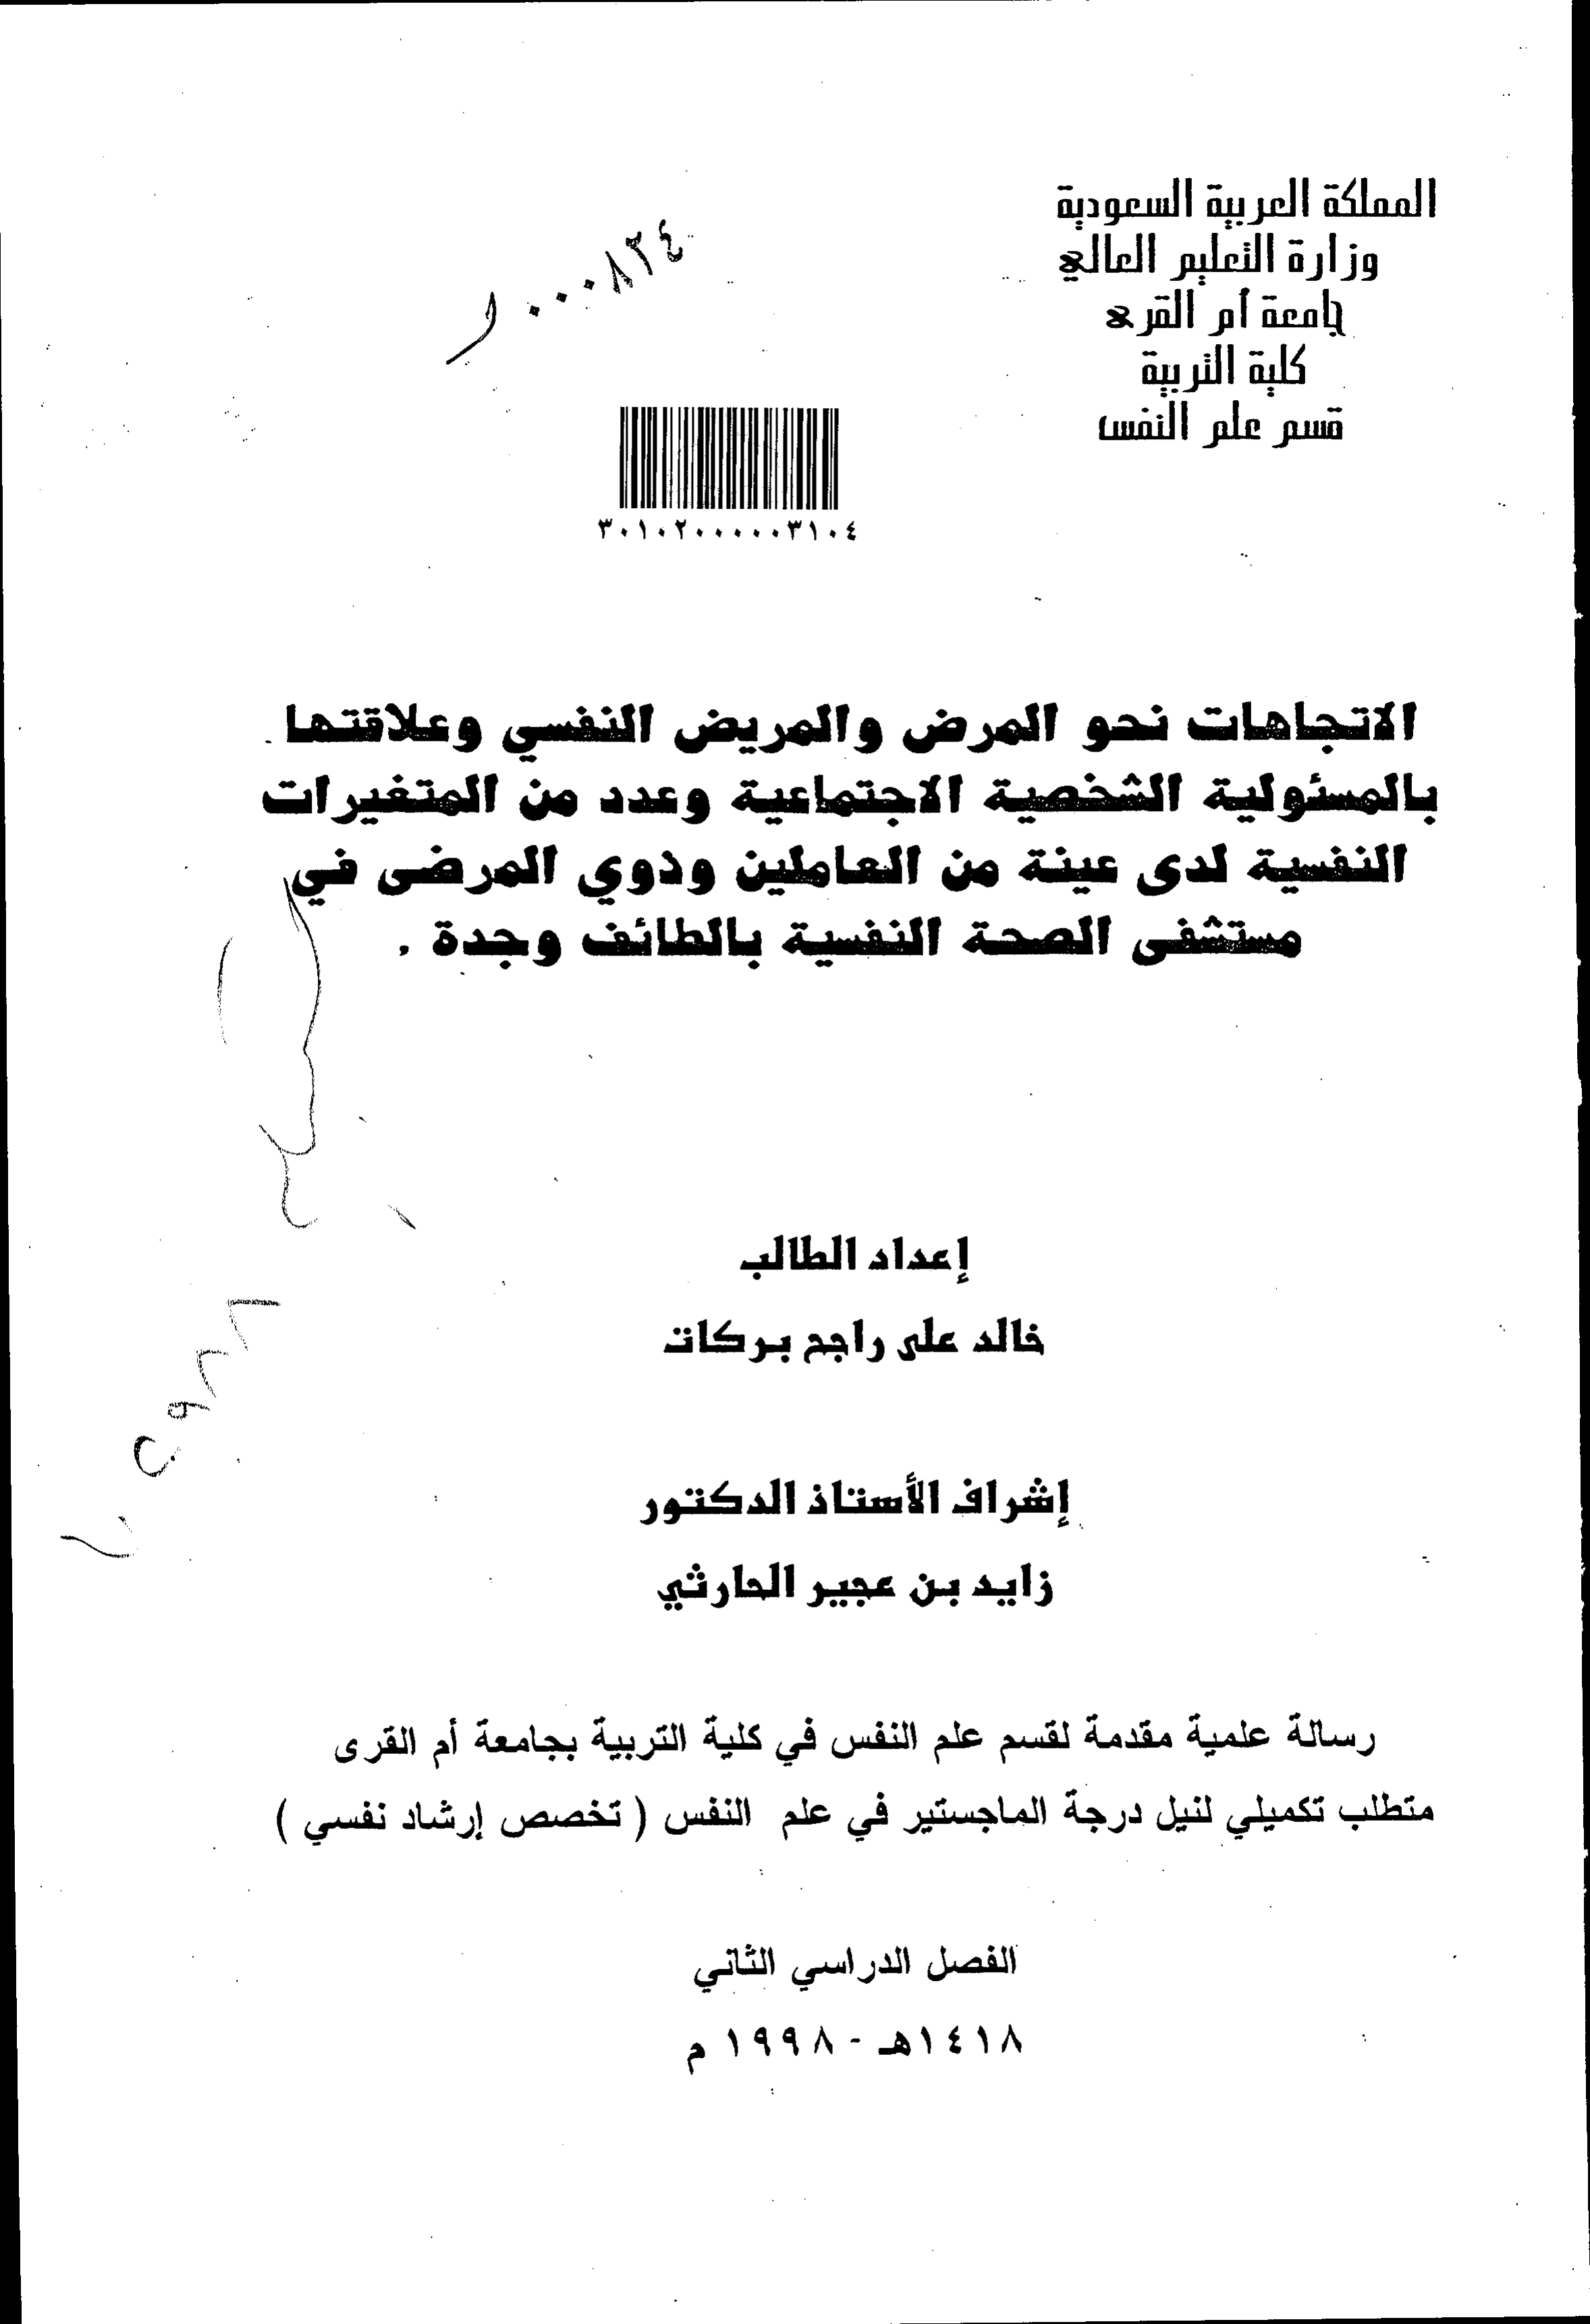 المملكة العربية السعودية
وزارة التعليم العالي
جامعة أم القرى
كلية التربية
قسم علم النفس
٠٠٠٨٢٤
٣٠١٠٢٠٠٠٠٠٣١٠٤
الاتجاهات نحو المرض والمريض النفسي وعلاقتها
بالمسئولية الشخصية الاجتماعية وعدد من المتغيرات
النفسية لدى عينة من العاملين وذوي المرضى في
مستشفى الصحة النفسية بالطائف وجدة .
إعداد الطالب
خالد على راجح بركات
إشراف الأستاذ الدكتور
زايد بن عجير الحارثي
رسالة علمية مقدمة لقسم علم النفس في كلية التربية بجامعة أم القرى
متطلب تكميلي لنيل درجة الماجستير في علم النفس ( تخصص إرشاد نفسي )
الفصل الدراسي الثاني
١٤١٨هـ - ١٩٩٨ م